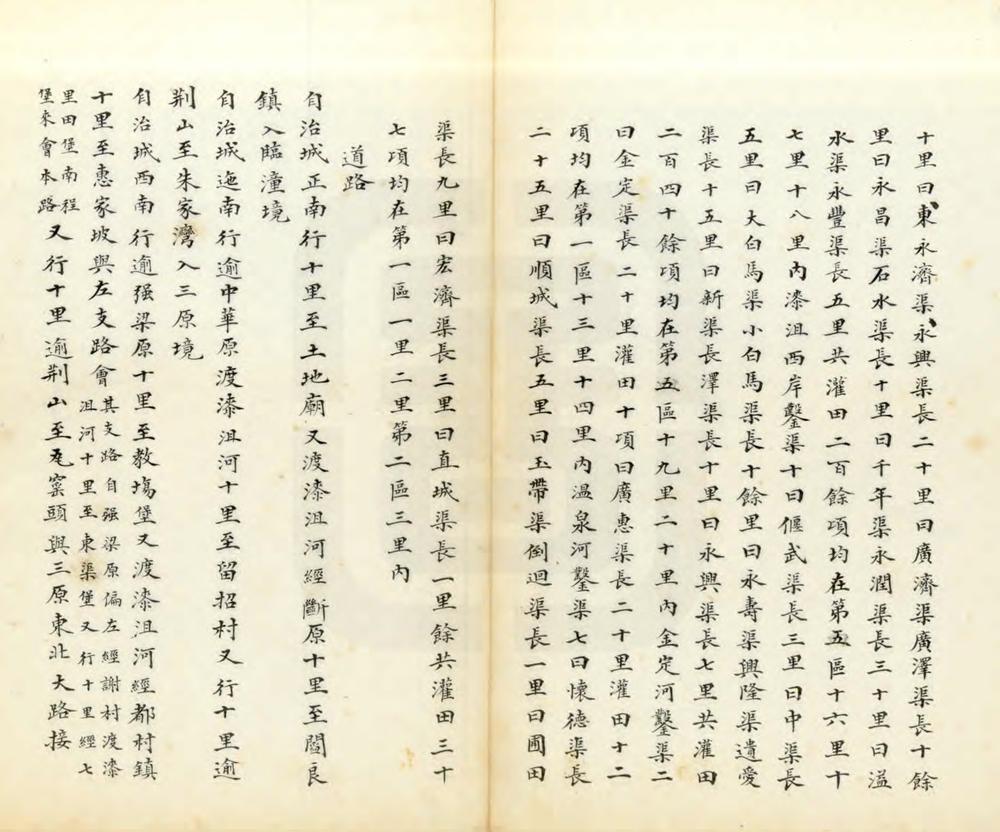 十里曰東永濟渠永興渠長二十里曰廣濟渠廣澤渠長十餘
里曰永昌渠石水渠長十里曰千年渠永潤渠長三十里曰溢
水渠永豐渠長五里共灌田二百餘項均在第五區十六里十
七里十八里內漆沮西岸鑿渠十曰偃武渠長三里曰中渠長
五里曰大白馬渠小白馬渠長十餘里曰永壽渠興隆渠遺愛
渠長十五里曰新渠長澤渠長十里曰永興渠長七里共灌田
二百四十餘項均在第五區十九里二十里內金定河鑿渠二
曰金定渠長二十里灌田十項曰廣惠渠長二十里灌田十二
項均在第一區十三里十四里內溫泉河鑿渠七曰懷德渠長
二十五里曰順城渠長五里曰玉帶渠倒迴渠長一里曰圃田
渠長九里曰宏濟渠長三里曰直城渠長一里餘共灌田三十
七項均在第一區一里二里第二區三里內
道路
自治城正南行十里至土地廟又渡漆沮河經斷原十里至閻良
鎮入臨潼境
自治城迤南行逾中華原渡漆沮河十里至留招村又行十里逾
荆山至朱家灣入三原境
自治城西南行逾强梁原十里至教塲堡又渡漆沮河經都村鎮
十里至惠家坡與左支路會其支路自强梁原偏左經謝村渡漆
沮河十里至東渠堡又行十里經七
里田堡南程
堡來會本路又行十里逾荆山至瓦窯頭與三原東北大路接